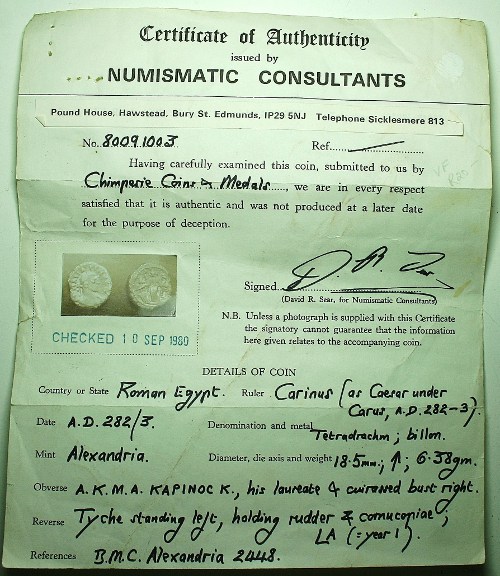 Certificate of Authenticity
issued by
NUMISMATIC CONSULTANTS
Pound House, Hawstead, Bury St. Edmunds, IP29 5NJ Telephone Sicklesmere 813
No. 80091003 Ref.
Having carefully examined this coin, submitted to us by
Chimperie Coins & Medals, we are in every respect
satisfied that it is authentic and was not produced at a later date
for the purpose of deception.
Signed D. R. Sear
(David R. Sear, for Numismatic Consultants)
N.B. Unless a photograph is supplied with this Certificate
the signatory cannot guarantee that the information
here given relates to the accompanying coin.
CHECKED 10 SEP 1980
DETAILS OF COIN
Country or State Roman Egypt. Ruler Carinus (as Caesar under
Carus, A.D. 282-3).
Date A.D. 282/3. Denomination and metal
Tetradrachm; billon.
Mint Alexandria. Diameter, die axis and weight 18.5mm.; ↑; 6.38gm.
Obverse A.K.M.A. KAPINOC K., his laureate & cuirassed bust right.
Reverse Tyche standing left, holding rudder & cornucopiae;
LA (= year 1).
References B.M.C. Alexandria 2448.